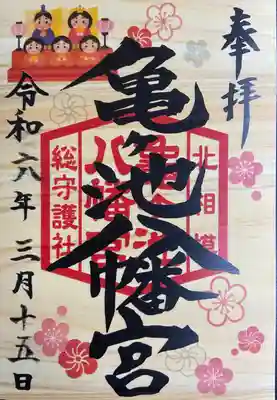 奉拝
亀ヶ池八幡宮
北相模
亀ヶ池
八幡宮
総守護社
令和六年 三月十五日